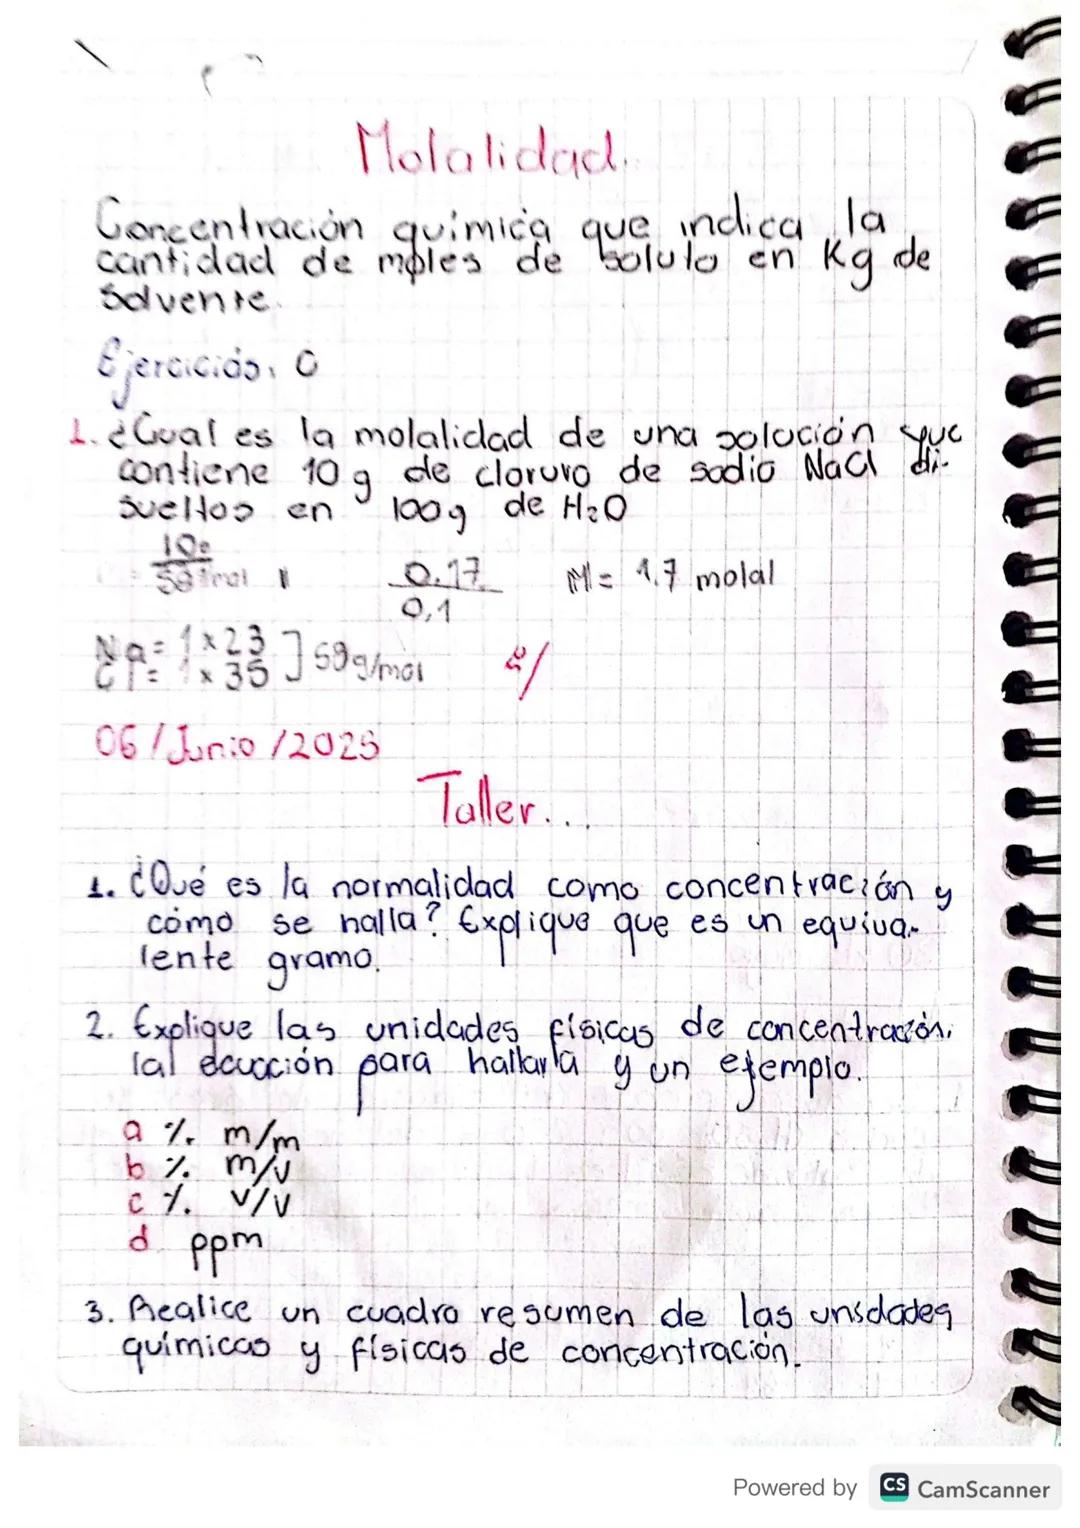 Molalidad.
Concentración química que indica la
cantidad de moles de soluto en Kg de
solvente.
Ejercicios.
1. ¿Cual es la molalidad de una solución que
contiene 10 g de cloruro de sodio NaCl di-
sueltos en 100g de H₂O
0.17 M = 1,7 molal
0,1
Na = 1 x 23 ] 58g/mol
Cl = 1 x 35
06/Junio/2025
Taller...
1. ¿Qué es la normalidad como concentración y
cómo se halla? Explique que es un equiva-
lente gramo.
2. Explique las unidades físicas de concentración.
la ecucción para hallarla y un ejemplo.
a %. m/m
b %. m/v
c %. v/v
d ppm
3. Realice un cuadro resumen de las unidades
químicas y físicas de concentración.
Powered by CS CamScanner